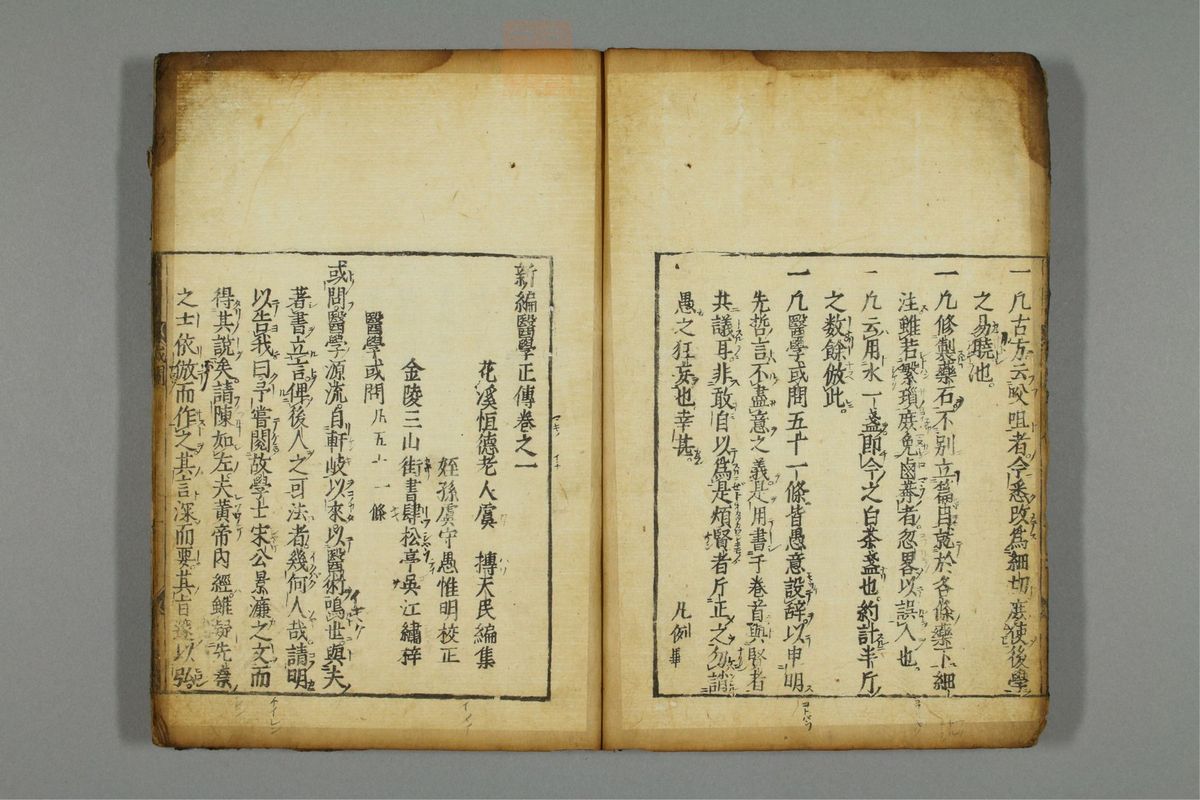 一凡古方云㕮咀者今悉改爲細切庶使後學
之易曉也
一凡修製藥石不別立篇目就於各條藥下細
注雖若繁瑣庶免鹵莽者忽畧以誤人也
一凡云用水一盞即今之白茶盞也約計半斤
之數餘倣此
一凡醫學或問五十一條皆愚意設辭以申明
先哲言不盡意之義是用書于卷首與賢者
共議耳非敢自以爲是煩賢者斤正之勿誚
愚之狂妄也幸甚
凡例畢
新編醫學正傳卷之一
花溪恒德老人虞 摶天民編集
姪孫虞守愚惟明校正
金陵三山街書肆松亭吳江繡梓
醫學或問凡五十一條
或問醫學源流自軒岐以來以醫術鳴世與夫
著書立言俾後人之可法者幾何人哉請明
以告我曰予嘗閱故學士宋公景濂之文而
得其說矣請陳如左夫黃帝內經雖疑先秦
之士依倣而作之其言深而要其旨邃以弘